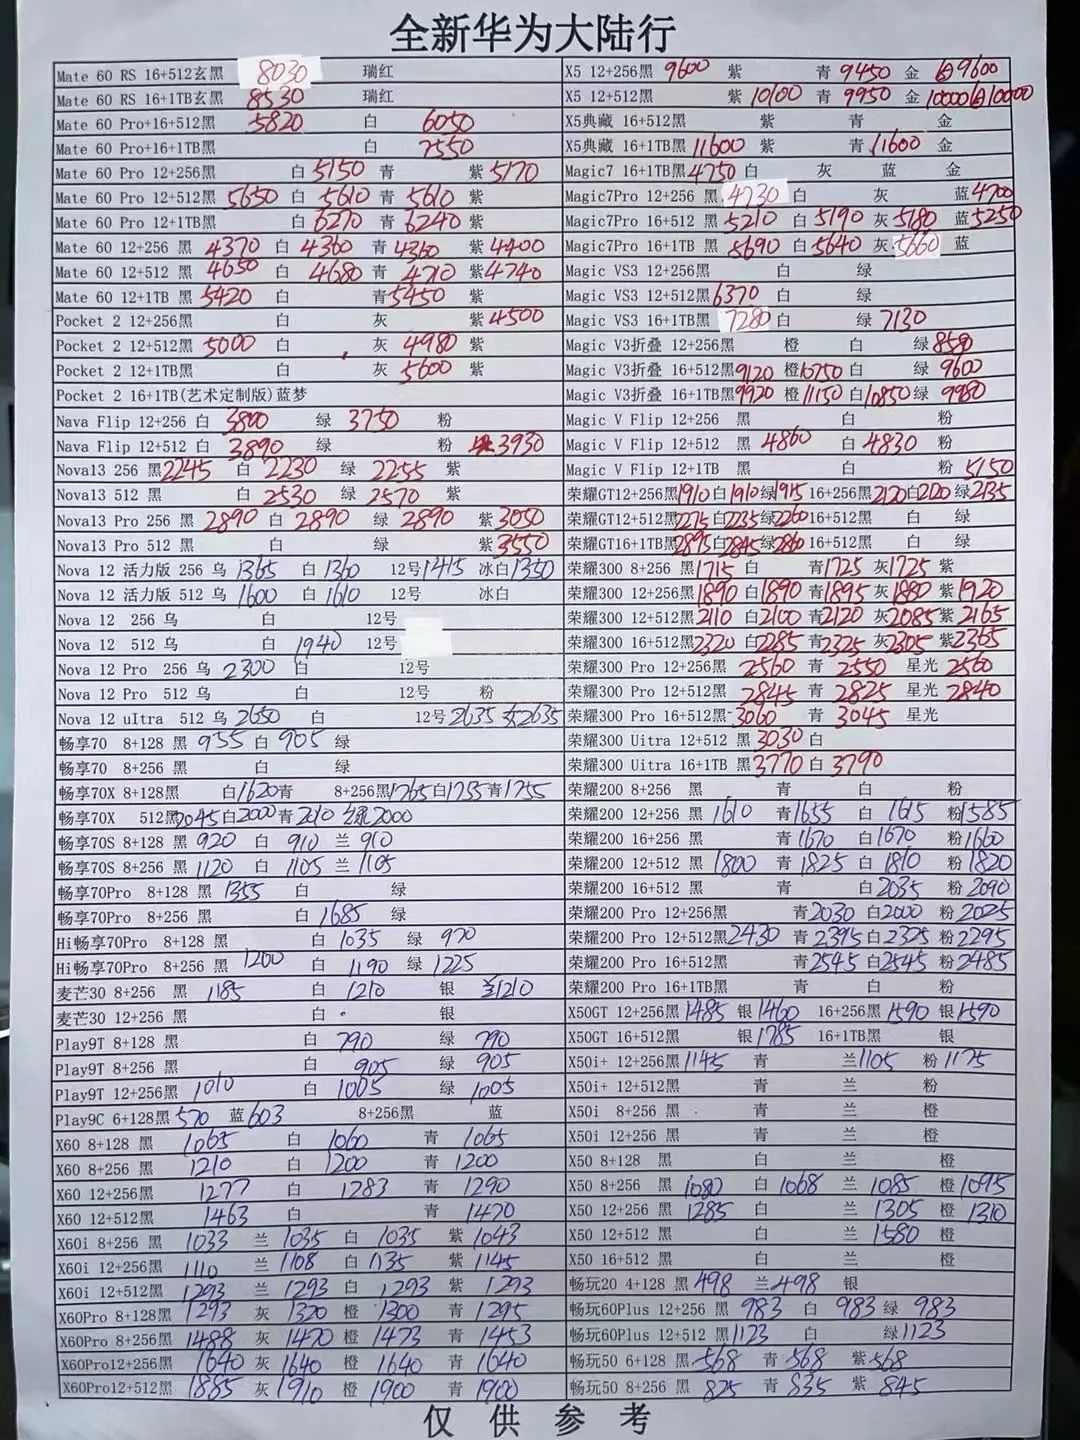 全新华为大陆行
Mate 60 RS 16+512玄黑 8030 瑞红
Mate 60 RS 16+1TB玄黑 8530 瑞红
Mate 60 Pro+16+512黑 5820 白 6050
Mate 60 Pro+16+1TB黑 白 7550
Mate 60 Pro 12+256黑 白 5150 青 紫 5170
Mate 60 Pro 12+512黑 5650 白 5610 青 5610 紫
Mate 60 Pro 12+1TB黑 白 6270 青 6240 紫
Mate 60 12+256 黑 4370 白 4360 青 4360 紫 4400
Mate 60 12+512 黑 4650 白 4680 青 4710 紫 4740
Mate 60 12+1TB 黑 5420 白 青 5450 紫
Pocket 2 12+256黑 白 灰 紫 4500
Pocket 2 12+512黑 5000 白 灰 4980 紫
Pocket 2 12+1TB黑 白 灰 5600 紫
Pocket 2 16+1TB(艺术定制版)蓝梦
Nava Flip 12+256 白 3800 绿 3750 粉
Nava Flip 12+512 白 3890 绿 粉 3930
Nova13 256 黑 2245 白 2230 绿 2255 紫
Nova13 512 黑 白 2530 绿 2570 紫
Nova13 Pro 256 黑 2890 白 2890 绿 2890 紫 3050
Nova13 Pro 512 黑 白 绿 紫 3550
Nova 12 活力版 256 乌 1365 白 1360 12号 1415 冰白 1350
Nova 12 活力版 512 乌 1600 白 1610 12号 冰白
Nova 12 256 乌 白 12号
Nova 12 512 乌 白 1940 12号
Nova 12 Pro 256 乌 2300 白 12号
Nova 12 Pro 512 乌 白 12号 粉
Nova 12 uItra 512 乌 2650 白 12号 2635 2635
畅享70 8+128 黑 955 白 905 绿
畅享70 8+256 黑 白 绿
畅享70X 8+128黑 白 1620 青 8+256黑 1765 白 1755 青 1755
畅享70X 512黑 2045 白 2000 青 2010 绿 2000
畅享70S 8+128 黑 920 白 910 兰 910
畅享70S 8+256 黑 1120 白 1105 兰 1105
畅享70Pro 8+128 黑 1355 白 绿
畅享70Pro 8+256 黑 白 1685 绿
Hi畅享70Pro 8+128 黑 白 1035 绿 970
Hi畅享70Pro 8+256 黑 1200 白 1190 绿 1225
麦芒30 8+256 黑 1185 白 1210 银 兰1210
麦芒30 12+256 黑 白 银
Play9T 8+128 黑 白 790 绿 790
Play9T 8+256 黑 白 905 绿 905
Play9T 12+256黑 1010 白 1005 绿 1005
Play9C 6+128黑 570 蓝 603 8+256黑 蓝
X60 8+128 黑 1065 白 1060 青 1065
X60 8+256 黑 1210 白 1200 青 1200
X60 12+256黑 1277 白 1283 青 1290
X60 12+512黑 1463 白 青 1470
X60i 8+256 黑 1033 兰 1035 白 1035 紫 1043
X60i 12+256 黑 1110 兰 1108 白 1135 紫 1145
X60i 12+512黑 1293 兰 1293 白 1293 紫 1293
X60Pro 8+128黑 1293 灰 1320 橙 1300 青 1295
X60Pro 8+256黑 1488 灰 1470 橙 1473 青 1453
X60Pro12+256黑 1640 灰 1640 橙 1640 青 1640
X60Pro12+512黑 1885 灰 1910 橙 1900 青 1900
X5 12+256黑 9600 紫 青 9450 金 白9600
X5 12+512黑 紫 10100 青 9950 金 10000 白10000
X5典藏 16+512黑 紫 青 金
X5典藏 16+1TB黑 11600 紫 青 11600 金
Magic7 16+1TB黑 4750 白 灰 蓝 金
Magic7Pro 12+256 黑 4730 白 灰 蓝 4700
Magic7Pro 16+512 黑 5210 白 5190 灰 5180 蓝 5250
Magic7Pro 16+1TB 黑 5690 白 5640 灰 5660 蓝
Magic VS3 12+256黑 白 绿
Magic VS3 12+512黑 6370 白 绿
Magic VS3 16+1TB黑 7280 白 绿 7130
Magic V3折叠 12+256黑 橙 白 绿
Magic V3折叠 16+512黑 9120 橙 10750 白 绿 9600
Magic V3折叠 16+1TB黑 9920 橙 11150 白 10850 绿 9980
Magic V Flip 12+256 黑 白 粉
Magic V Flip 12+512 黑 4860 白 4830 粉
Magic V Flip 12+1TB 黑 白 粉 5150
荣耀GT12+256黑 1910 白 1910 绿 1915 16+256黑 2120 白 2120 绿 2135
荣耀GT12+512黑 2275 白 2235 绿 2260 16+512黑 白 绿
荣耀GT16+1TB黑 2895 白 2845 绿 2860 16+512黑 白 绿
荣耀300 8+256 黑 1715 白 青 1725 灰 1725 紫
荣耀300 12+256黑 1890 白 1890 青 1895 灰 1880 紫 1920
荣耀300 12+512黑 2110 白 2100 青 2120 灰 2085 紫 2165
荣耀300 16+512黑 2320 白 2285 青 2325 灰 2305 紫 2365
荣耀300 Pro 12+256黑 2560 青 2550 星光 2560
荣耀300 Pro 12+512黑 2845 青 2825 星光 2840
荣耀300 Pro 16+512黑 3060 青 3045 星光
荣耀300 Uitra 12+512 黑 3030 白
荣耀300 Uitra 16+1TB 黑 3770 白 3790
荣耀200 8+256 黑 青 白 粉
荣耀200 12+256 黑 1610 青 1655 白 1615 粉 1585
荣耀200 16+256 黑 青 1670 白 1670 粉 1660
荣耀200 12+512 黑 1800 青 1825 白 1810 粉 1820
荣耀200 16+512 黑 青 白 2035 粉 2090
荣耀200 Pro 12+256黑 青 2030 白 2000 粉 2025
荣耀200 Pro 12+512黑 2430 青 2395 白 2325 粉 2295
荣耀200 Pro 16+512黑 青 2545 白 2545 粉 2485
荣耀200 Pro 16+1TB黑 青 白 粉
X50GT 12+256黑 1485 银 1460 16+256黑 1590 银 1590
X50GT 16+512黑 银 1785 16+1TB黑 银
X50i+ 12+256黑 1145 青 兰 1105 粉 1175
X50i+ 12+512黑 青 兰 粉
X50i 8+256黑 青 兰 橙
X50i 12+256 黑 青 兰 橙
X50 8+128 黑 白 兰 橙
X50 8+256 黑 1080 白 1068 兰 1085 橙 1095
X50 12+256 黑 1285 白 兰 1305 橙 1310
X50 12+512 黑 白 兰 1580 橙
X50 16+512 黑 白 兰 橙
畅玩20 4+128 黑 498 兰 498 银
畅玩60Plus 12+256 黑 983 白 983 绿 983
畅玩60Plus 12+512 黑 1123 白 绿 1123
畅玩50 6+128 黑 568 青 568 紫 568
畅玩50 8+256 黑 825 青 835 紫 845
仅供参考